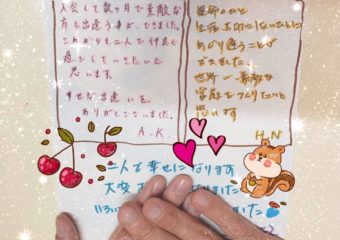 入会して数ヶ月で素敵な
方と出逢う事ができました。
これからも二人で仲良く
過ごしていきたいと
思います
幸せな出逢いを
ありがとうございました。
A.K
運命のひと
生涯大切にしたいひとに
めぐり逢うことが
できました
世界一素敵な
家族をつくりたいと
思います
H.N
二人で幸せになります
大変お
ました
いろい
ました